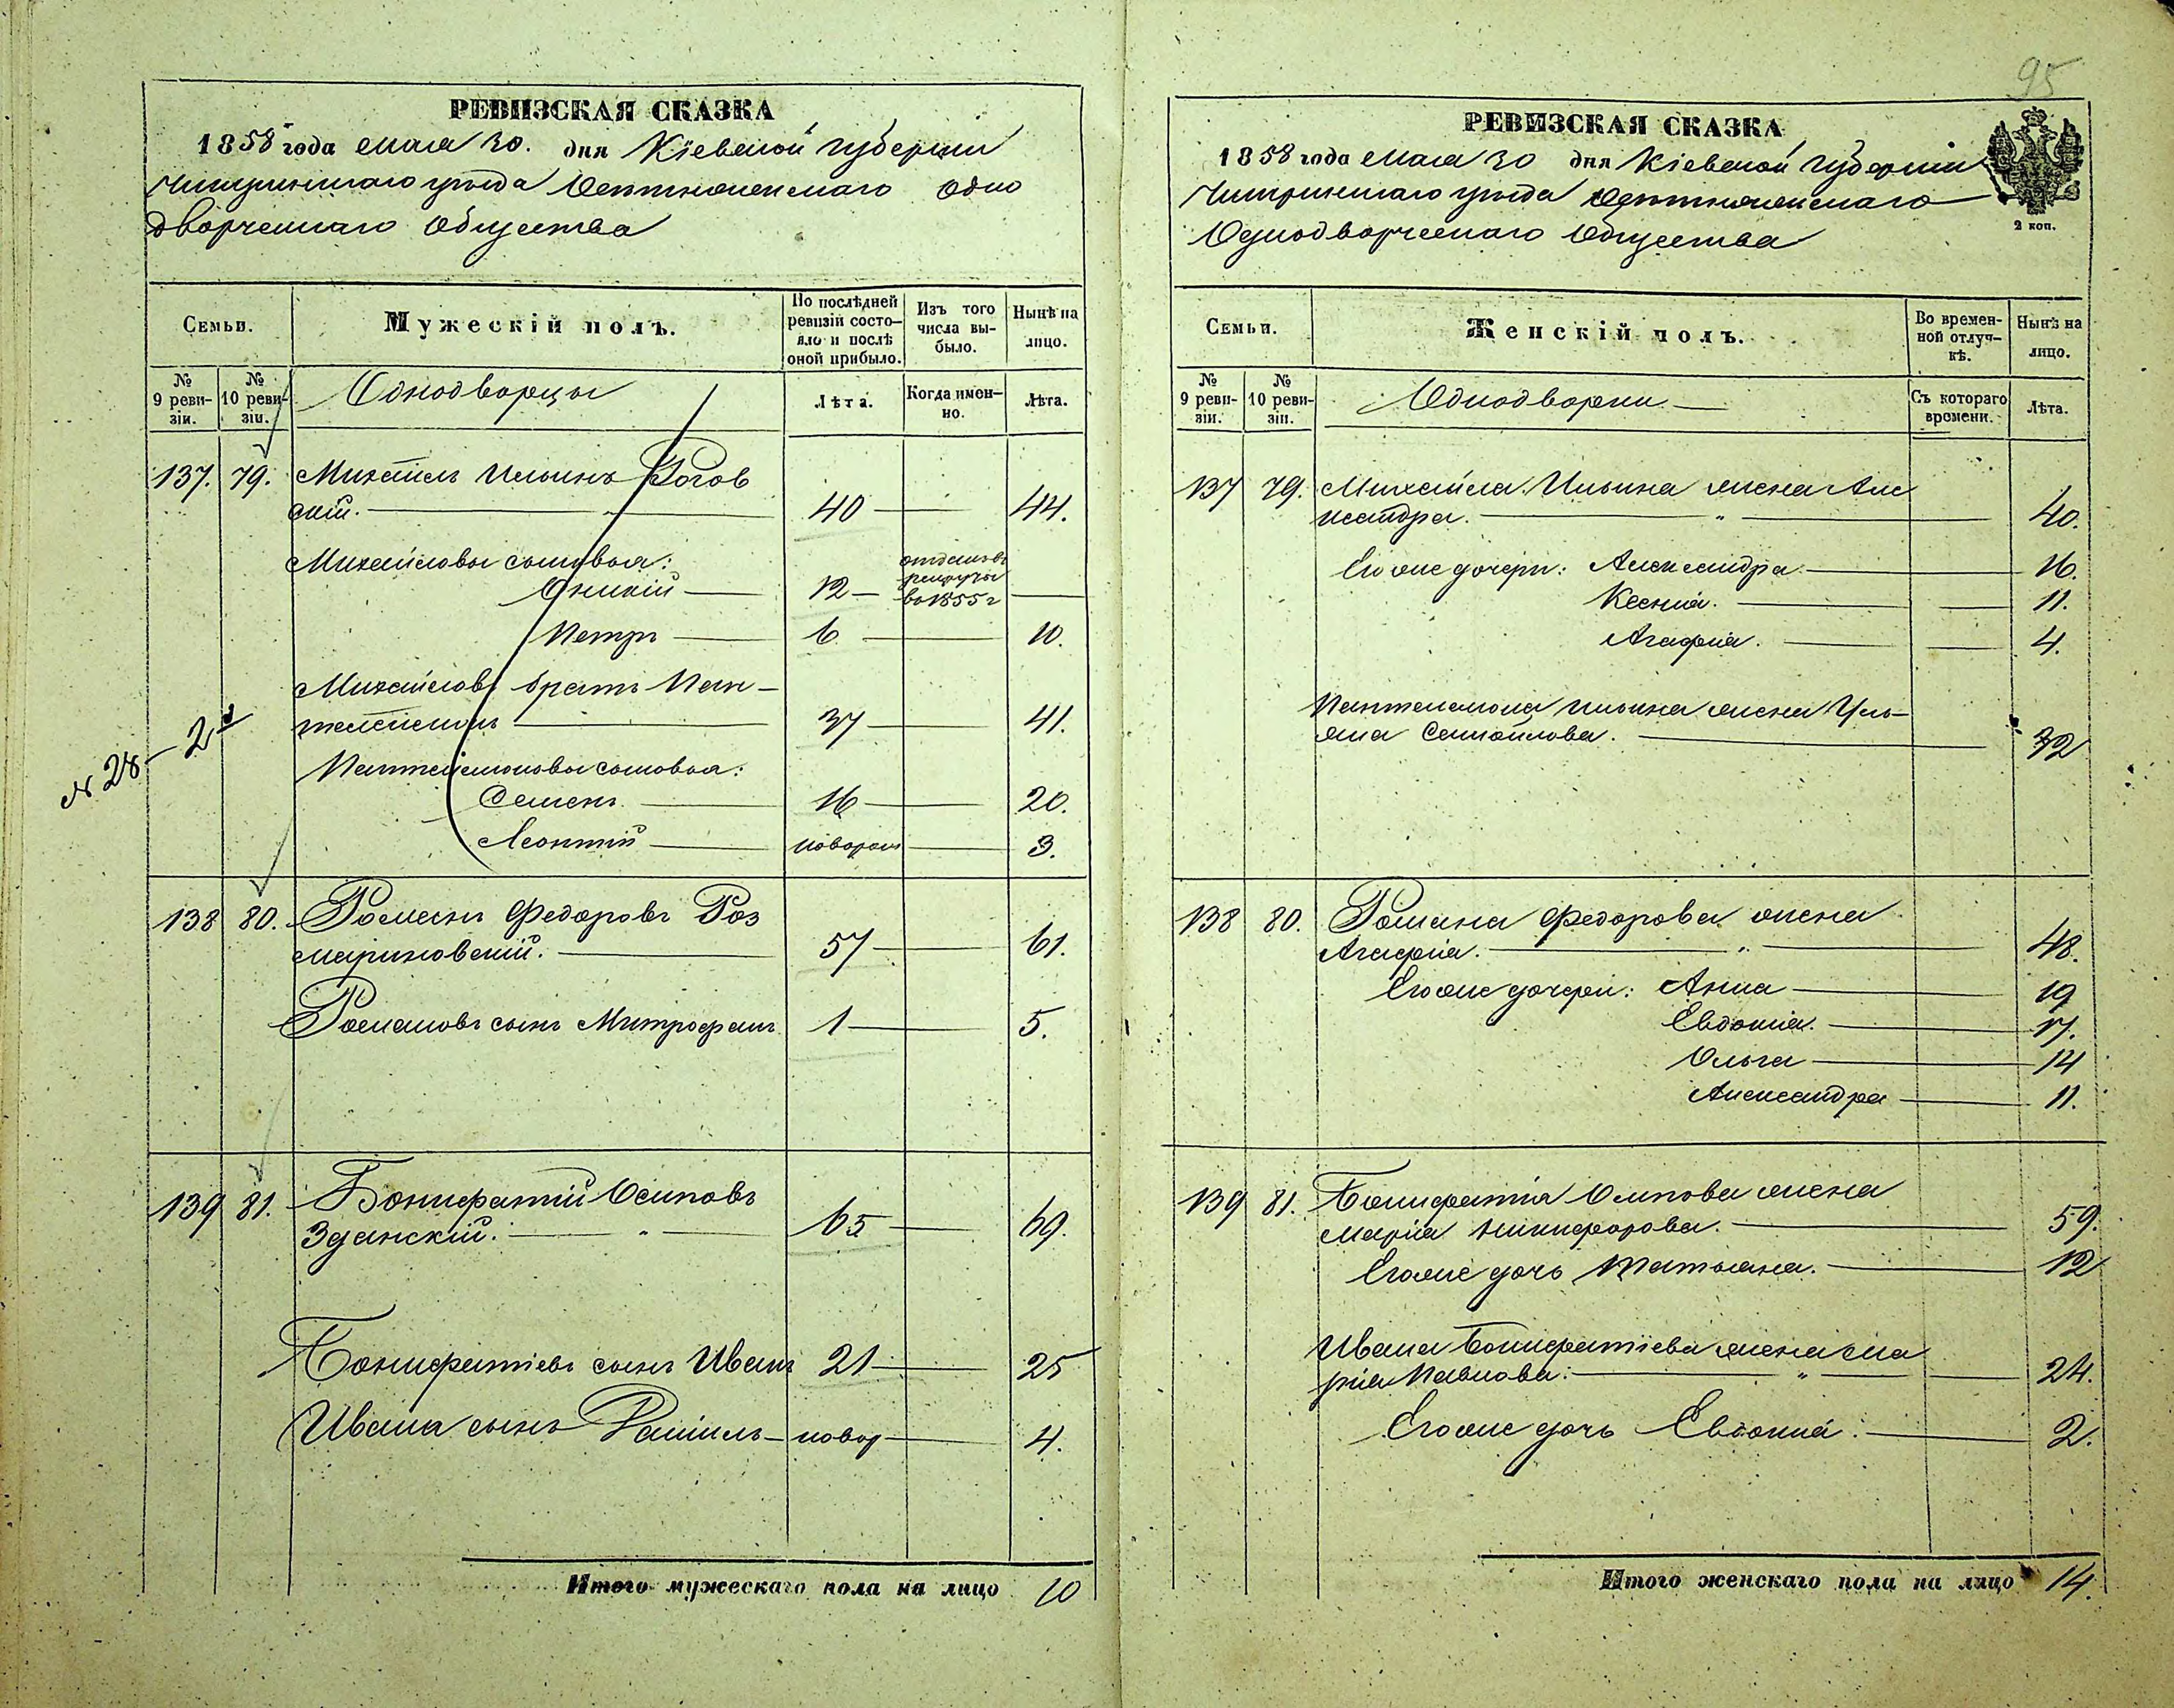 РЕВИЗСКАЯ СКАЗКА
1858 года мая 30. дня Кіевской губерніи
Чигиринскаго уѣзда одно
дворческаго общества
Семьи.
Мужескій полъ.
По послѣдней ревизіи состояло и послѣ оной прибыло.
Изъ того числа выбыло.
Нынѣ на лицо.
№ 9 ревизіи.
№ 10 ревизіи.
Однодворцы
Лѣта.
Когда именно.
Лѣта.
137. 79. Михаилъ Ильинъ Рогов
скій. 40 44.
Михайловы сыновья:
Онисій 12 отданъ въ рекруты въ 1855 г
Петръ 6 10.
Михайловъ братъ Пан-
телеимонъ 37 41.
Пантелеимоновы сыновья:
Семенъ 16 20.
Леонтій новорож 3.
№ 28 – 2
138 80. Романъ Федоровъ Роз
мариновскій. 57 61.
Романовъ сынъ Митрофанъ 1 5.
139 81. Бонифатій Осиповъ
Зданскій. 65 69.
Бонифатіевъ сынъ Иванъ 21 25
Ивана сынъ новор 4.
Итого мужескаго пола на лицо 10
95
РЕВИЗСКАЯ СКАЗКА
1858 года мая 30 дня Кіевской губерніи
Чигиринскаго уѣзда
Однодворческаго общества
2 коп.
Семьи.
Женскій полъ.
Во временной отлучкѣ.
Нынѣ на лицо.
№ 9 ревизіи.
№ 10 ревизіи.
Однодворки
Съ котораго времени.
Лѣта.
137 79. Михаила Ильина жена Але
ксандра. 40.
Его же дочери: Александра 16.
Ксенія. 11.
Агафія. 4.
Пантелеимона Ильина жена Уль-
яна Самойлова. 32
138 80. Романа Федорова жена
Агафія. 48.
Его же дочери: Анна 19
Евдокія. 17.
Ольга 14
Александра 11.
139 81. Бонифатія Осипова жена
Марія Никифорова. 59.
Его же дочь Татьяна. 12
Ивана Бонифатіева жена Ма
рія Павлова: 24.
Его же дочь Евдокія: 2.
Итого женскаго пола на лицо 14.